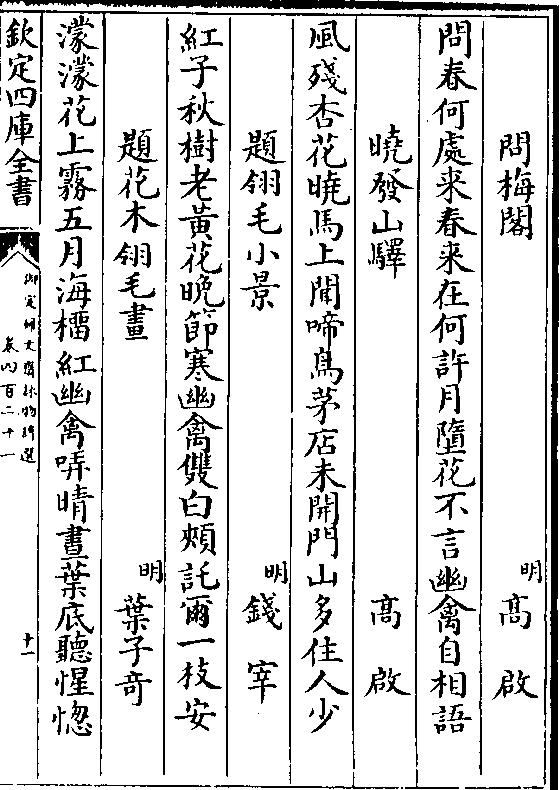 問梅閣 明 高啟
問春何處来春来在何許月墮花不言幽禽自相語
曉發山驛 高啟
風殘杏花曉馬上聞啼鳥茅店未開門山多住人少
題翎毛小景 明 錢宰
紅子秋樹老黃花晚節寒幽禽雙白頰託爾一枝安
題花木翎毛畫 明 葉子奇
濛濛花上霧五月海榴紅幽禽哢晴晝葉底聽惺惚
欽定四庫全書
御定佩文齋詠物詩選
卷四百二十一
十一